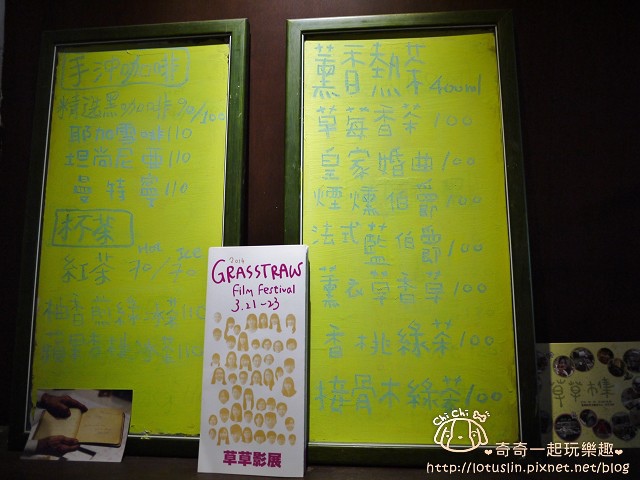 手沖咖啡
精選黑咖啡 90/100
耶加雪啡 110
坦尚尼亞 110
曼特寧 110
杯茶
HOT ICE
紅茶 70/70
柚香煎綠冰茶
110
薰香熱茶 400ml
草莓香茶 100
皇家婚曲 100
煙燻伯爵 100
法式藍伯爵 100
薰衣草香草 100
香桃綠茶 100
接骨木綠茶 100
2014
GRASSTRAW
Film Festival
3.21-23
草草影展
草草市集
Chi Chi
奇奇一起玩樂趣
http://lotuslin.pixnet.net/blog